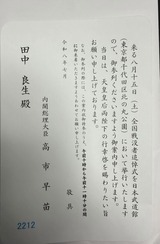 来る八月十五日(土)全国戦没者追悼式を日本武道館
(東京都千代田区北の丸公園)において挙行いたします
ので、御参列くださいますよう御案内申し上げます。
当日は、天皇皇后両陛下の行幸啓を賜わりたい旨
お願い申し上げております。
敬具
令和八年七月
内閣総理大臣
高市早苗
田中 良生 殿
2212